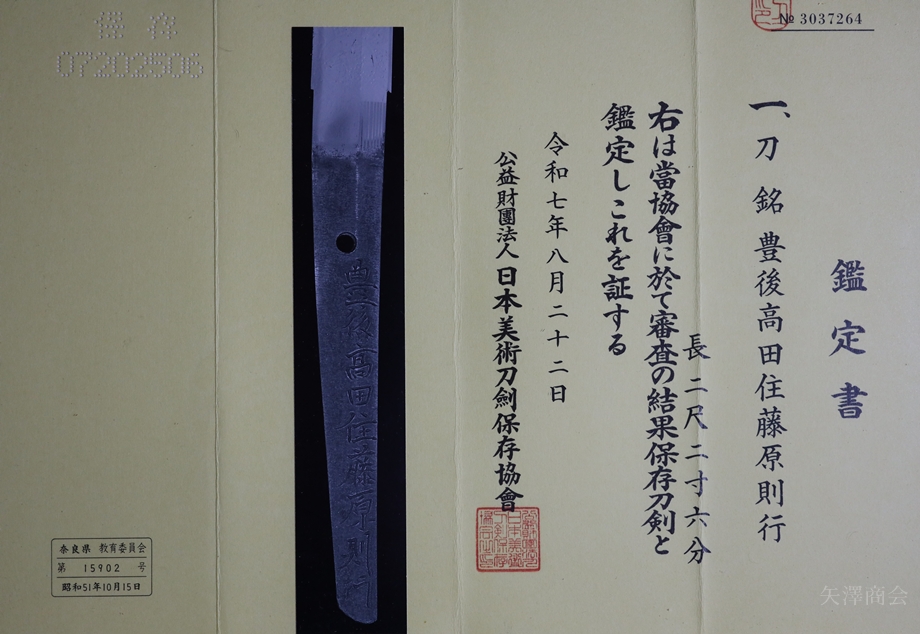 № 3037264
鑑定書
一、刀 銘 豊後高田住藤原則行
長二尺二寸六分
右は當協會に於て審査の結果保存刀剣と
鑑定しこれを証する
令和七年八月二十二日
公益財團法人 日本美術刀劍保存協會
豊後高田住藤原則行
保存
07202506
奈良県 教育委員会
第 15902 号
昭和51年10月15日
矢澤商会